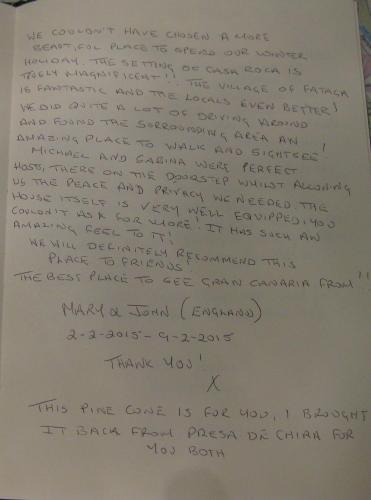 WE COULDN'T HAVE CHOSEN A MORE
BEAUTIFUL PLACE TO SPEND OUR WINTER
HOLIDAY. THE SETTING OF CASA ROCA IS
TRULY MAGNIFICENT!! THE VILLAGE OF FATAGA
IS FANTASTIC AND THE LOCALS EVEN BETTER!
WE DID QUITE A LOT OF DRIVING AROUND
AND FOUND THE SURROUNDING AREA AN
AMAZING PLACE TO WALK AND SIGHTSEE!
MICHAEL AND SABINA WERE PERFECT
HOSTS, THERE ON THE DOORSTEP WHILST ALLOWING
US THE PEACE AND PRIVACY WE NEEDED. THE
HOUSE ITSELF IS VERY WELL EQUIPPED, YOU
COULDN'T ASK FOR MORE! IT HAS SUCH AN
AMAZING FEEL TO IT!
WE WILL DEFINITELY RECOMMEND THIS
PLACE TO FRIENDS!
THE BEST PLACE TO SEE GRAN CANARIA FROM!!
MARY & JOHN (ENGLAND)
2-2-2015 - 9-2-2015
THANK YOU!
X
THIS PINE CONE IS FOR YOU, I BROUGHT
IT BACK FROM PRESA DE CHIRA FOR
YOU BOTH